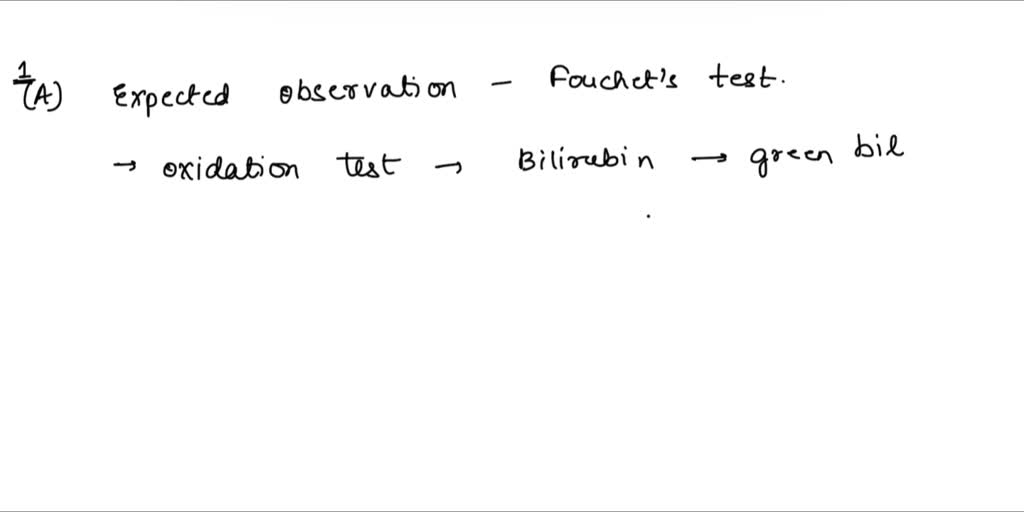 1/(A) Expected observation - Fouchet's test.
→ oxidation test → Bilirubin → green bil